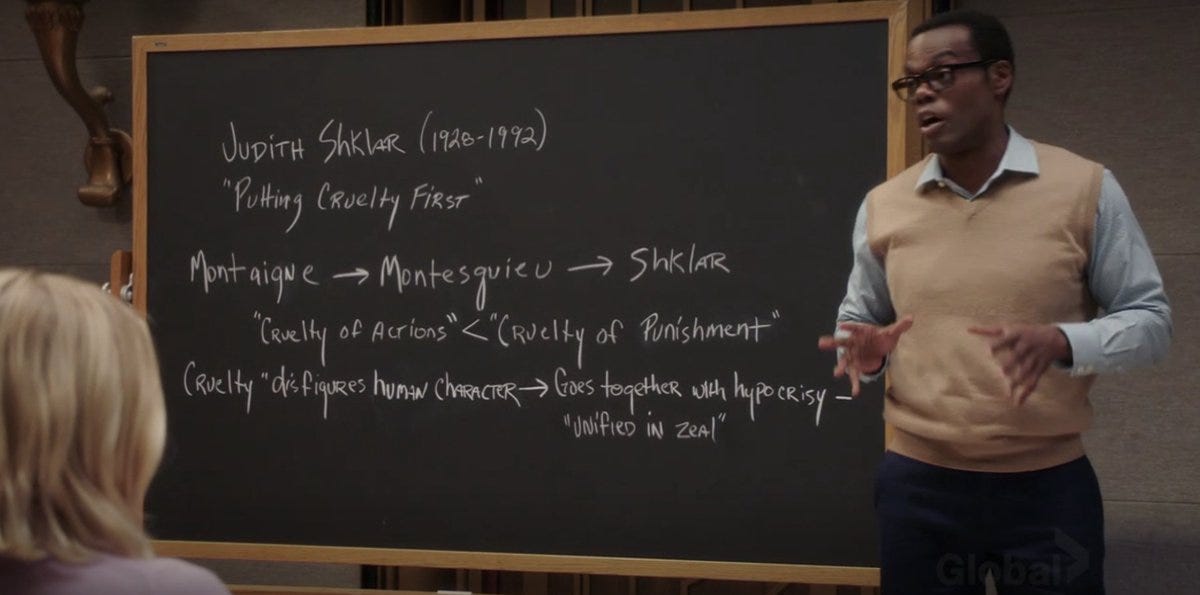 Judith Shklar (1928-1992)
"Putting Cruelty First"
Montaigne → Montesquieu → Shklar
"Cruelty of Actions" < "Cruelty of Punishment"
Cruelty "disfigures human character → Goes together with hypocrisy –
"unified in zeal"
Global